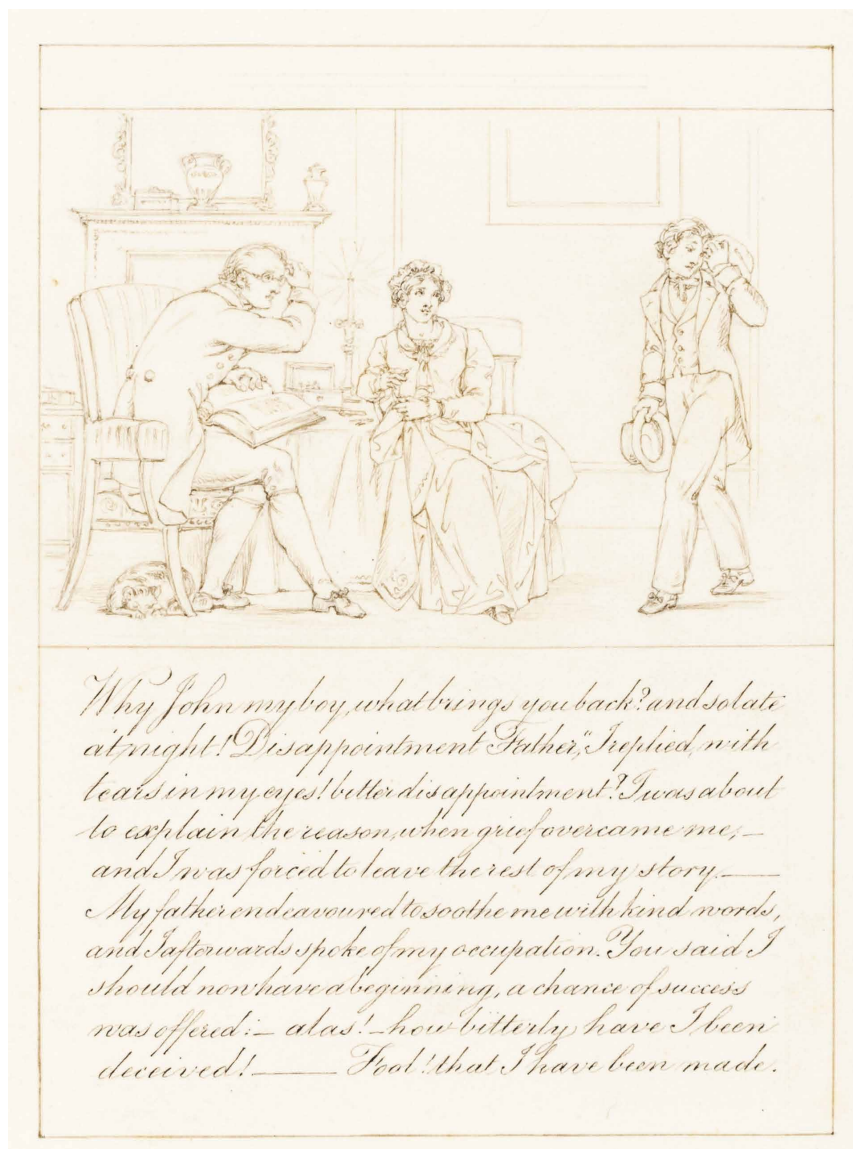 Why John my boy, what brings you back? and so late
at night! Disappointment Father," I replied, with
tears in my eyes! bitter disappointment? I was about
to explain the reason, when grief overcame me, —
and I was forced to leave the rest of my story. —
My father endeavoured to soothe me with kind words,
and I afterwards spoke of my occupation. You said I
should now have a beginning, a chance of success
was offered :— alas! — how bitterly have I been
deceived! — Fool! that I have been made.